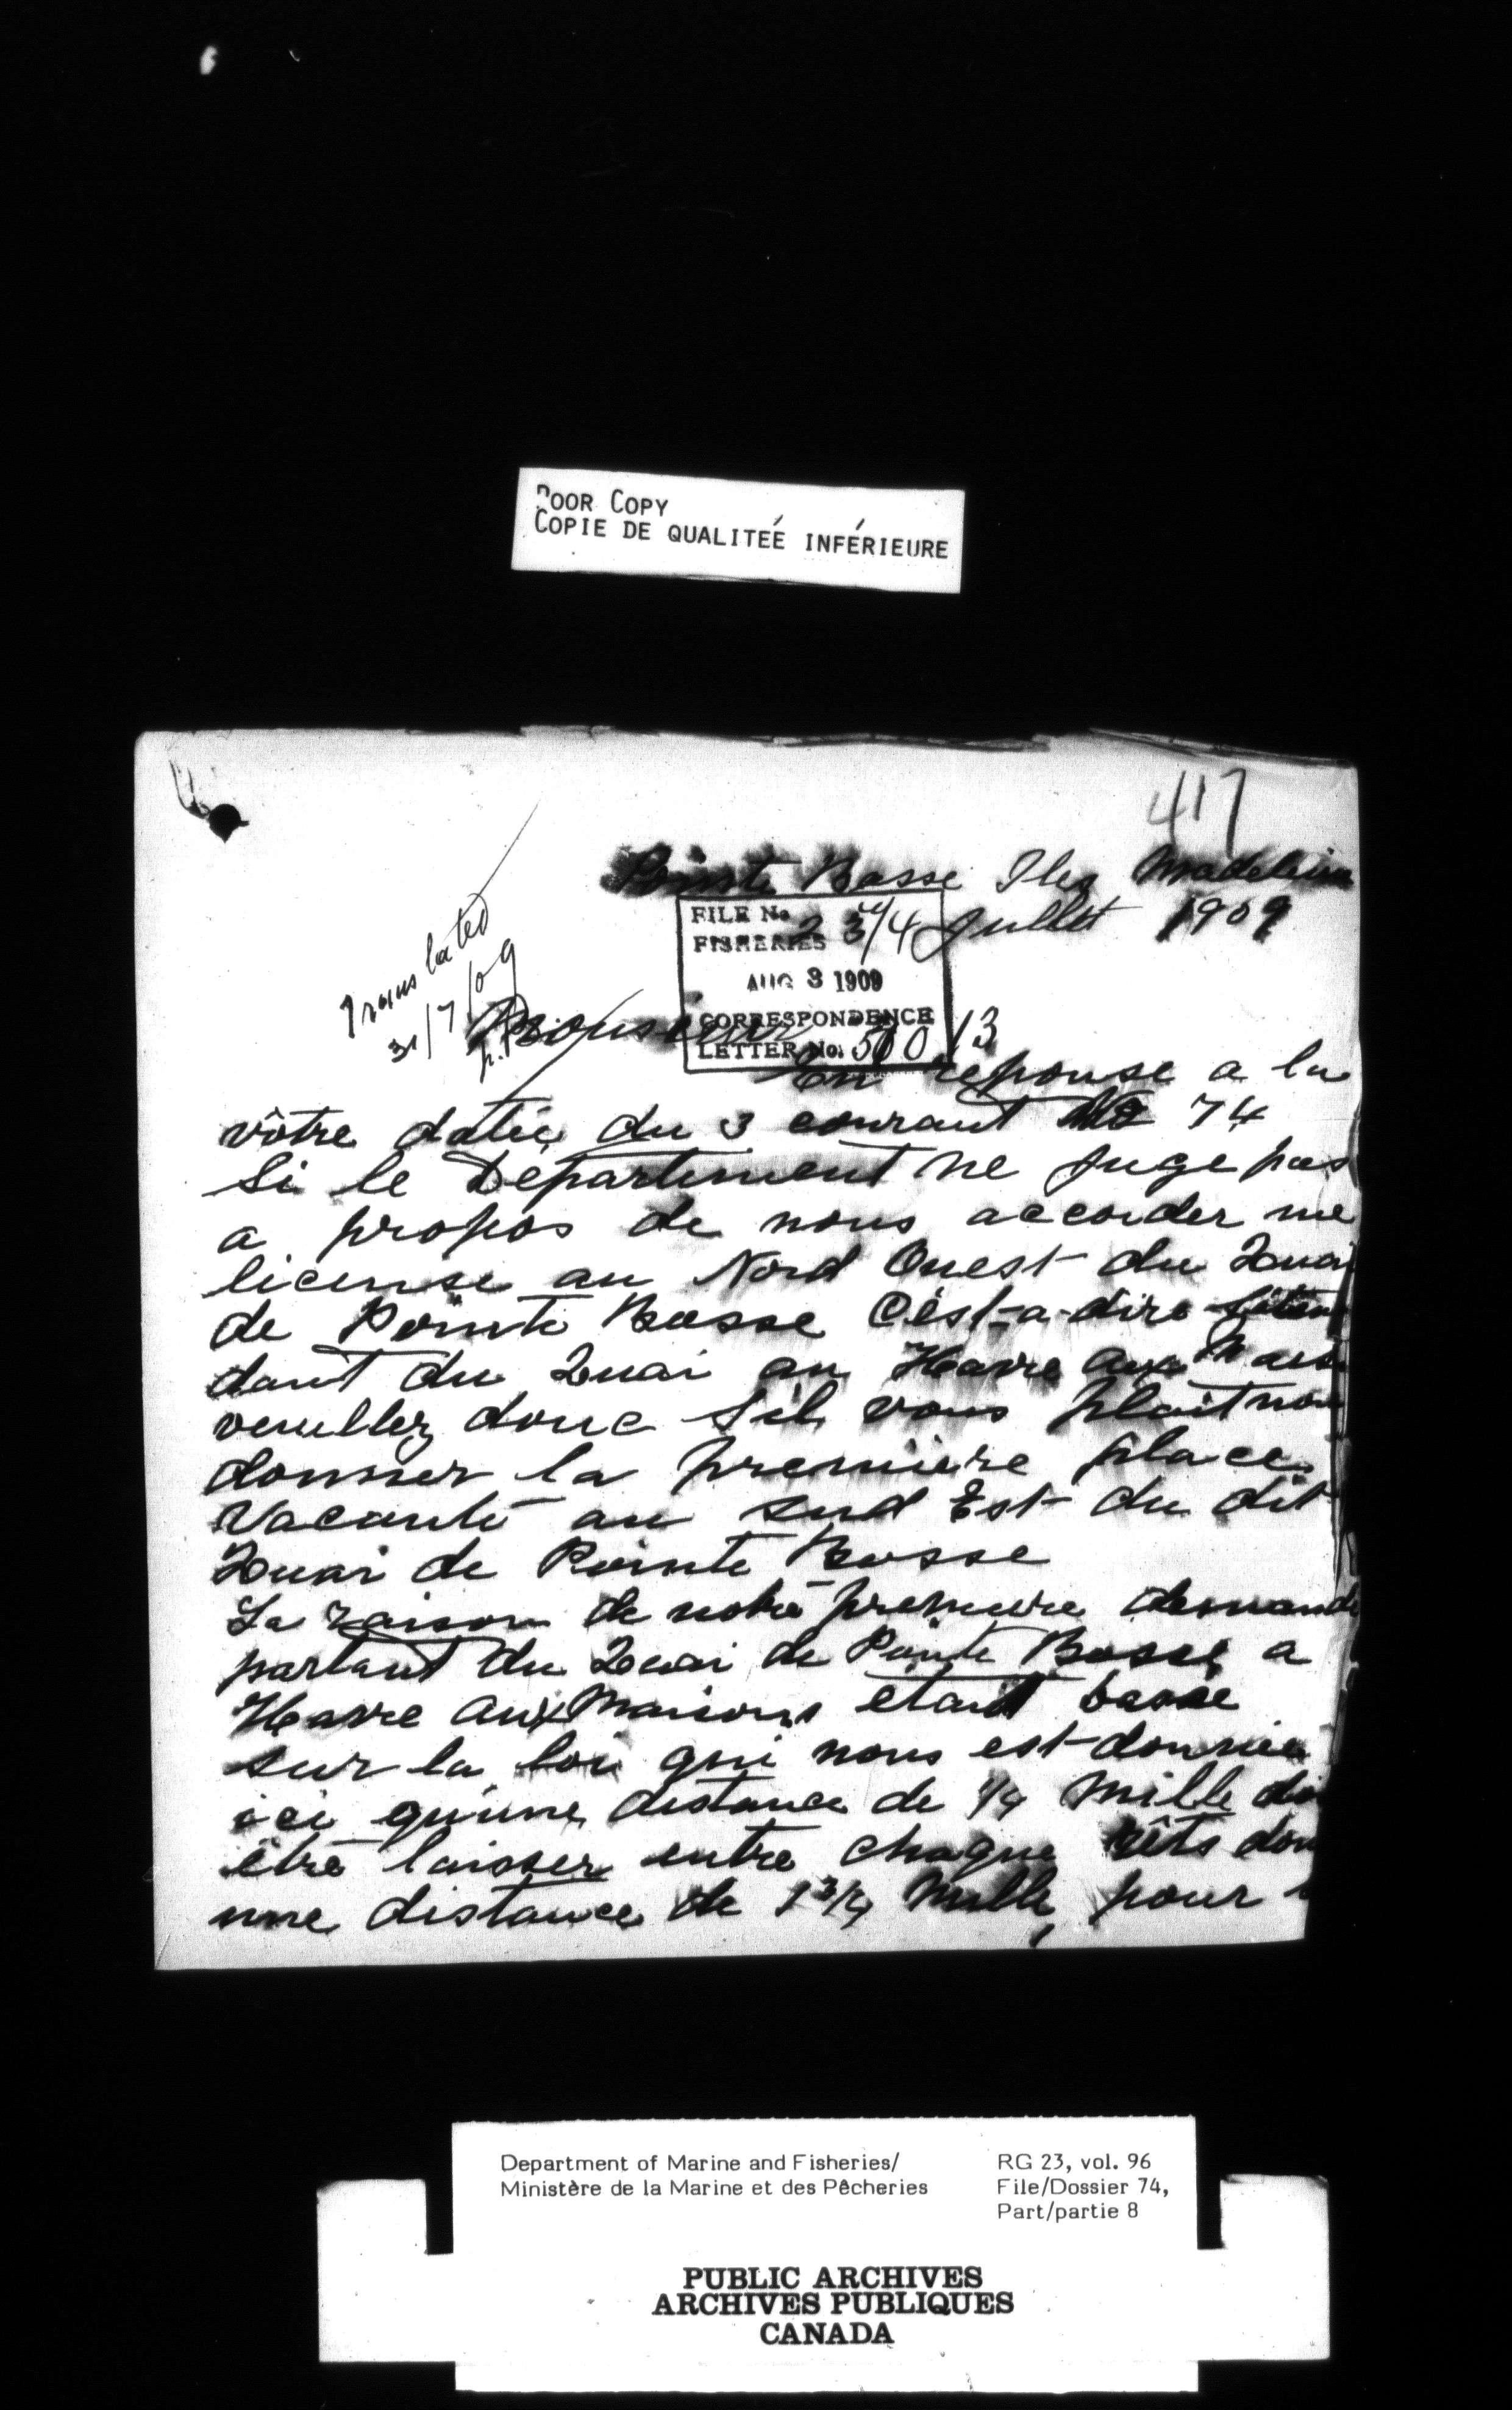 POOR COPY
COPIE DE QUALITEÉ INFÉRIEURE
417
Pointe Basse Iles Madeleine
FILE No
FISHERIES
Juillet 1909
AUG 3 1909
Translated
31/7/09
Monsieur
CORRESPONDENCE
LETTER No. 50013
En reponse a la
vôtre datée du 3 courant No 74
Si le Département ne juge pas
a propos de nous accorder une
license au Nord Ouest du Quai
de Pointe Basse C'est-a-dire
dant du Quai au Havre aux
veuillez donc s'il vous plait
donner la première place
Vacante au Sud Est du dit
Quai de Pointe Basse
La raison de notre premiere demande
partant du Quai de Pointe Basse a
Havre aux Maisons etait basée
sur la loi qui nous est donnée
ici qu'une distance de 1/4 Mille
être laisser entre chaque rêts
une distance de 1 3/4 Mille, pour
Department of Marine and Fisheries/
Ministère de la Marine et des Pêcheries
RG 23, vol. 96
File/Dossier 74,
Part/partie 8
PUBLIC ARCHIVES
ARCHIVES PUBLIQUES
CANADA